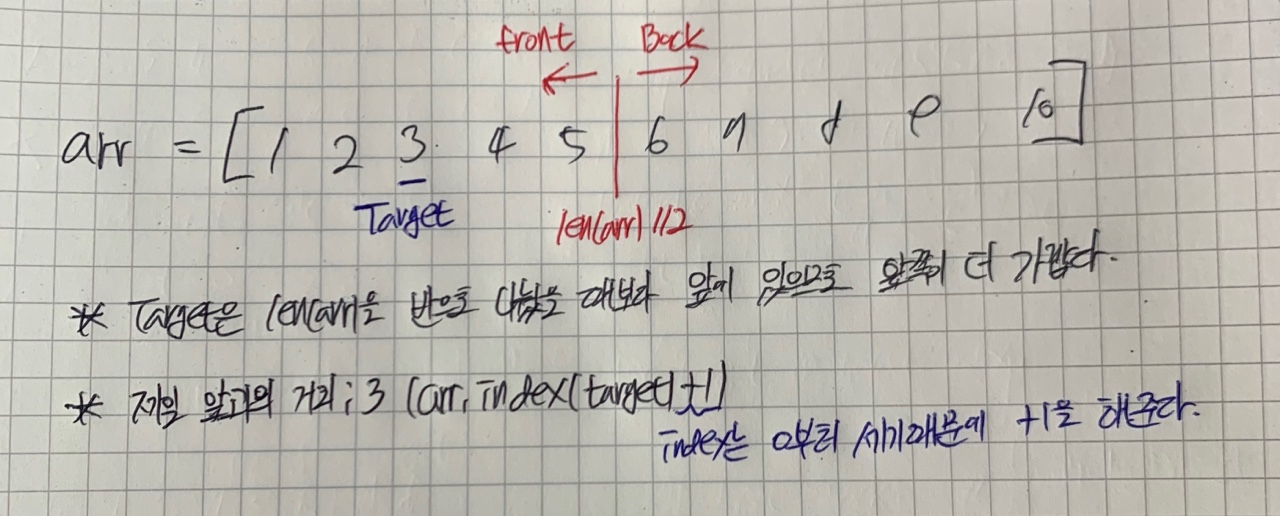 front Back
arr = [1 2 3 4 5 6 7 8 9 10]
Target len(arr)//2
* Target은 len(arr)을 반으로 나눴을 때보다 앞에 있으므로 앞쪽이 더 가깝다.
* 제일 앞과의 거리 : 3 (arr.index(target)+1)
index는 0부터 세기때문에 +1을 해준다.